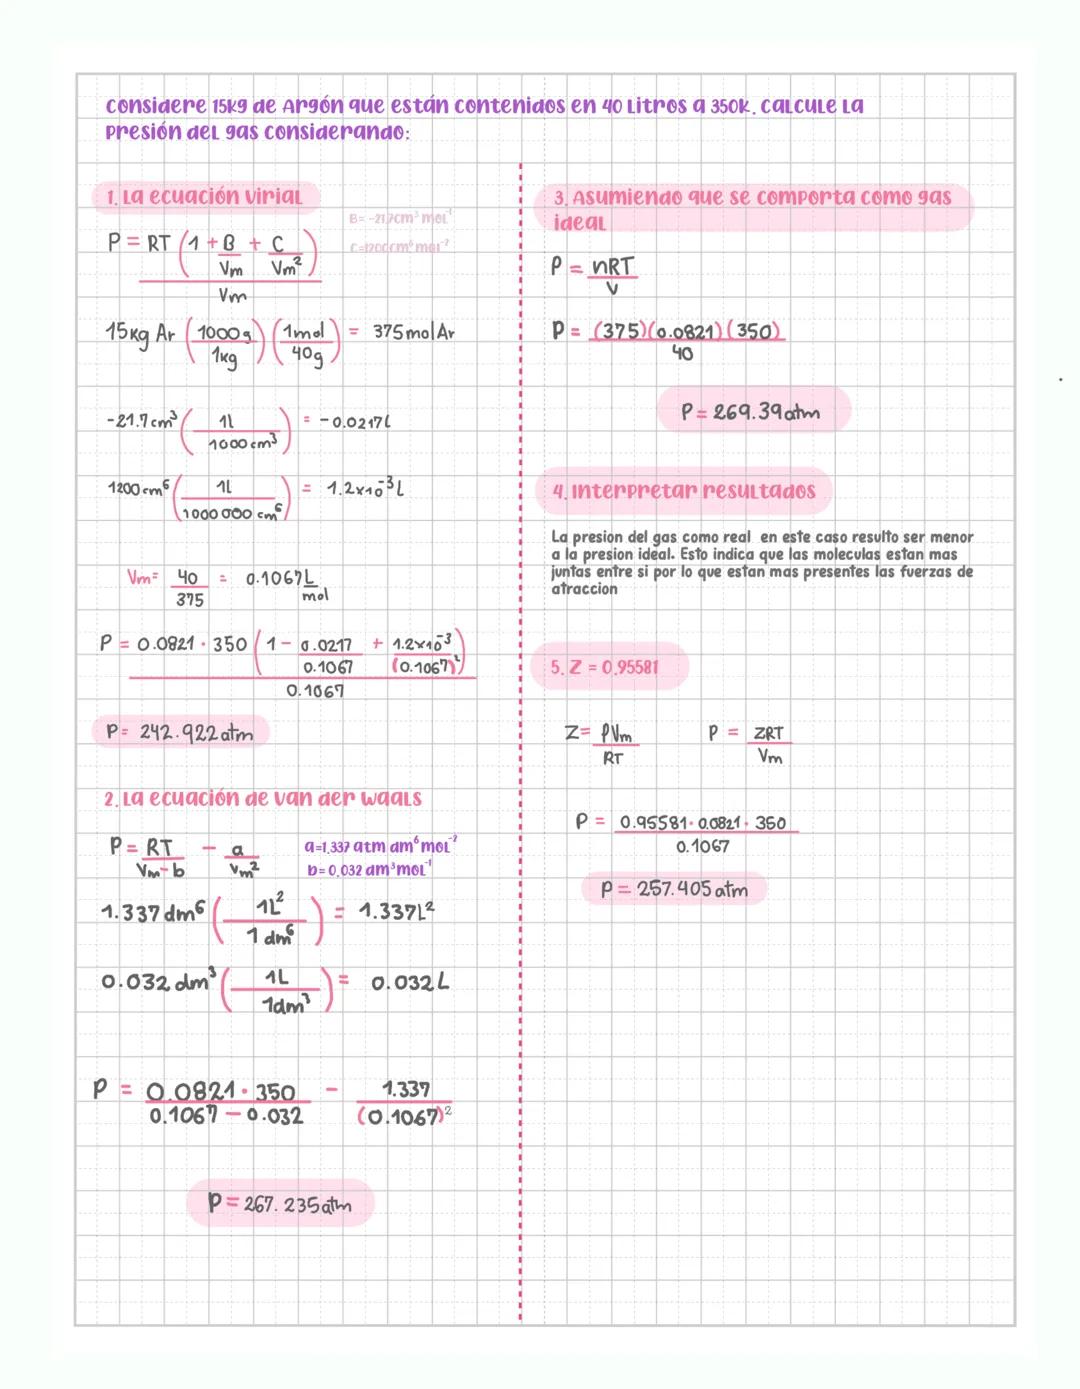 Considere 15kg de Argón que están contenidos en 40 Litros a 350k. Calcule la
presión del gas considerando:
1. La ecuación virial
B= -21.7cm³ mol⁻¹
C=1200cm⁶mol⁻²
P = RT (1 + B/Vm + C/Vm²) / Vm
15kg Ar (1000g / 1kg) (1mol / 40g) = 375molAr
-21.7cm³ (1l / 1000cm³) = -0.0217l
1200cm⁶ (1l / 1000000 cm⁶) = 1.2x10⁻³L
Vm= 40/375 = 0.1067 L/mol
P = 0.0821 · 350 (1 - 0.0217/0.1067 + 1.2x10⁻³/(0.1067)²) / 0.1067
P= 242.922atm
2. La ecuación de van der waals
P = RT / Vm-b - a / Vm²
a=1,337 atm dm⁶mol⁻²
b=0,032 dm³mol⁻¹
1.337dm⁶ (1L² / 1dm⁶) = 1.337L²
0.032dm³ (1L / 1dm³) = 0.032L
P = 0.0821·350 / 0.1067-0.032 - 1.337 / (0.1067)²
P=267.235atm
3. Asumiendo que se comporta como gas
ideal
P = nRT / V
P = (375)(0.0821)(350) / 40
P= 269.39atm
4. Interpretar resultados
La presion del gas como real en este caso resulto ser menor
a la presion ideal. Esto indica que las moleculas estan mas
juntas entre si por lo que estan mas presentes las fuerzas de
atraccion
5. Z = 0,95581
Z= PVm / RT
P = ZRT / Vm
P = 0.95581·0.0821·350 / 0.1067
P=257.405atm